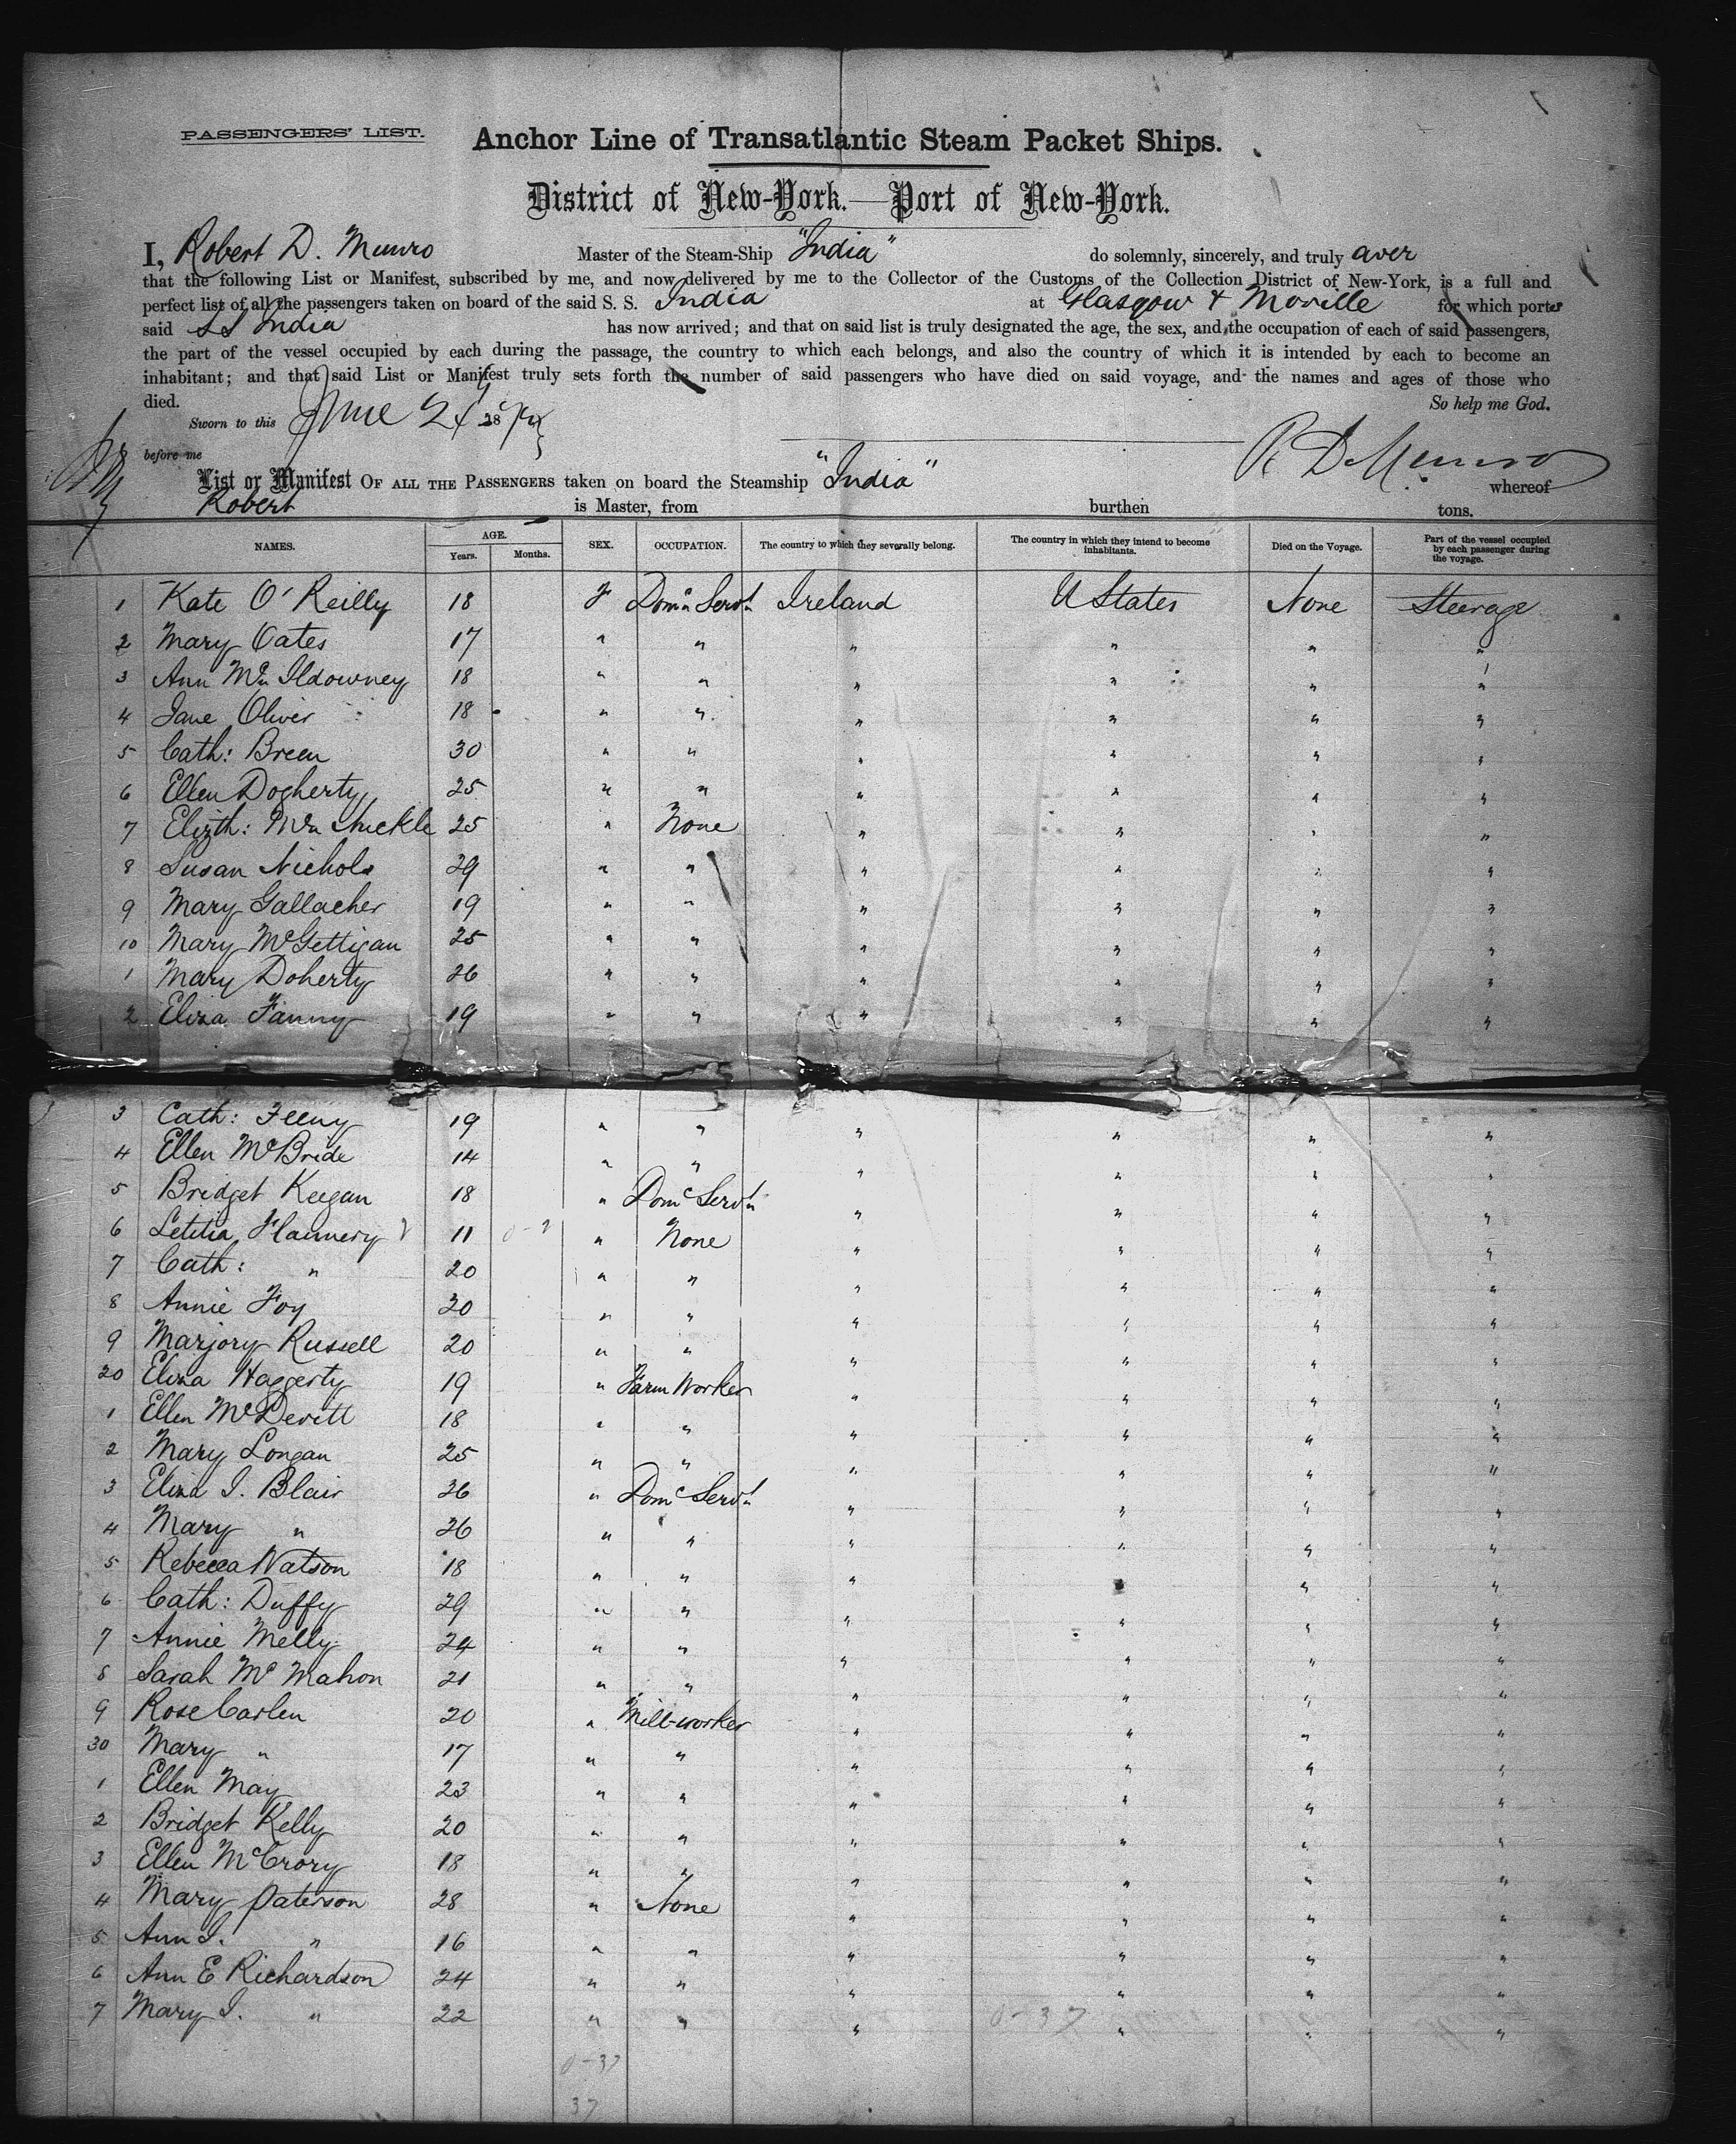 PASSENGERS' LIST.
Anchor Line of Transatlantic Steam Packet Ships.
District of New-York.—Port of New-York.
I, Robert D. Munro Master of the Steam-Ship "India" do solemnly, sincerely, and truly aver
that the following List or Manifest, subscribed by me, and now delivered by me to the Collector of the Customs of the Collection District of New-York, is a full and
perfect list of all the passengers taken on board of the said S. S. India at Glasgow & Moville for which ports
said SS India has now arrived; and that on said list is truly designated the age, the sex, and the occupation of each of said passengers,
the part of the vessel occupied by each during the passage, the country to which each belongs, and also the country of which it is intended by each to become an
inhabitant; and that said List or Manifest truly sets forth the number of said passengers who have died on said voyage, and the names and ages of those who
died. So help me God.
Sworn to this June 24 187
before me R D Munro
List or Manifest OF ALL THE PASSENGERS taken on board the Steamship "India" whereof
Robert is Master, from burthen tons.
NAMES. AGE. Years. Months. SEX. OCCUPATION. The country to which they severally belong. The country in which they intend to become inhabitants. Died on the Voyage. Part of the vessel occupied by each passenger during the voyage.
1 Kate O'Reilly 18 F Domc Servt Ireland U States None Steerage
2 Mary Oates 17 " " " " " "
3 Ann Mc Ildowney 18 " " " " " "
4 Jane Oliver 18 " " " " " "
5 Cath: Breen 30 " " " " " "
6 Ellen Dogherty 25 " " " " " "
7 Elizth: Mc 25 " None " " " "
8 Susan Nichols 29 " " " " " "
9 Mary Gallacher 19 " " " " " "
10 Mary McGettigan 25 " " " " " "
1 Mary Doherty 26 " " " " " "
2 Eliza Fanny 19 " " " " " "
3 Cath: Feeny 19 " " " " " "
4 Ellen McBride 14 " " " " " "
5 Bridget Keegan 18 " Domc Servt " " " "
6 Letitia Flannery 11 " None " " " "
7 Cath: " 20 " " " " " "
8 Annie Foy 20 " " " " " "
9 Marjory Russell 20 " " " " " "
20 Eliza Haggerty 19 " Farm Worker " " " "
1 Ellen McDevitt 18 " " " " " "
2 Mary Longan 25 " " " " " "
3 Eliza J. Blair 26 " Domc Servt " " " "
4 Mary " 26 " " " " " "
5 Rebecca Watson 18 " " " " " "
6 Cath: Duffy 29 " " " " " "
7 Annie Melly 24 " " " " " "
8 Sarah Mc Mahon 21 " " " " " "
9 Rose Carlen 20 " Mill-worker " " " "
30 Mary " 17 " " " " " "
1 Ellen May 23 " " " " " "
2 Bridget Kelly 20 " " " " " "
3 Ellen McCrory 18 " " " " " "
4 Mary Paterson 28 " None " " " "
5 Ann J. " 16 " " " " " "
6 Ann E Richardson 24 " " " " " "
7 Mary J. " 22 " " " " " "
0-37
0-37
37